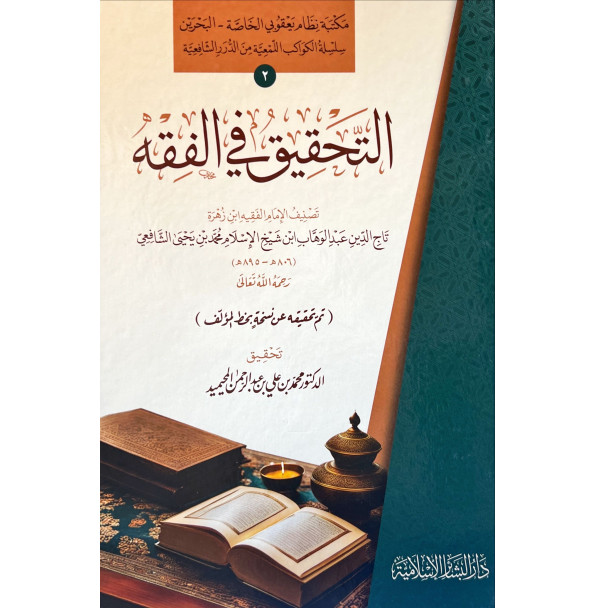 مَكتبَة نِظَام يَعقُوبي الخاصَّة - البَحرَين
سِلسِلَةُ الكَواكِب اللَّمعِيَّة مِنَ الدُّرَرِ الشَّافِعِيَّة
٢
التَّحْقِيقُ فِي الفِقْهِ
تَصنِيفُ الإِمَامِ الفَقِيهِ ابْنِ زُهْرَة
تَاجِ الدِّينِ عَبْدِ الوَهَّابِ ابْنِ شَيْخِ الإِسْلَامِ مُحَمَّدِ بْنِ يَحْيَى الشَّافِعِيِّ
(٨٠٦هـ – ٨٩٥هـ)
رَحِمَهُ اللَّهُ تَعَالَى
(تم تحقيقه عن نسخةٍ بخط المؤلف)
تَحْقِيق
الدكتور محمد بن علي بن عبد الرحمن المحيميد
دَارُ البَشَائِرِ الإِسْلَامِيَّة